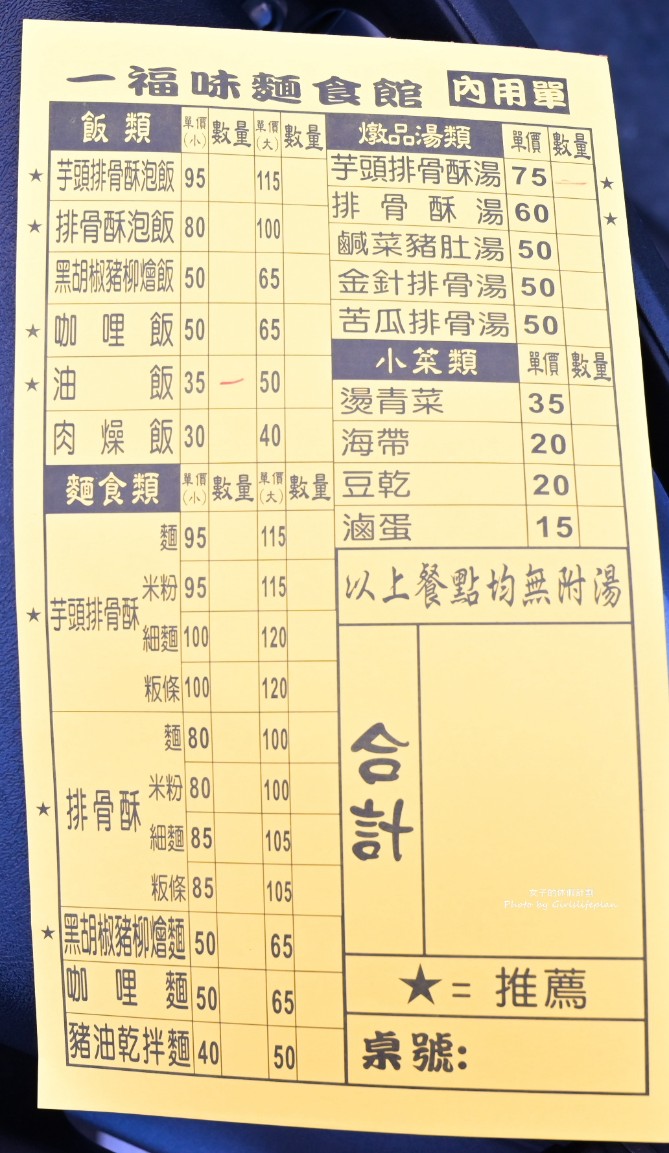 一福味麵食館 內用單
飯類 單價(小) 數量 單價(大) 數量
★ 芋頭排骨酥泡飯 95 115
★ 排骨酥泡飯 80 100
黑胡椒豬柳燴飯 50 65
★ 咖哩飯 50 65
★ 油飯 35 一 50
肉燥飯 30 40
麵食類 單價(小) 數量 單價(大) 數量
★ 芋頭排骨酥
麵 95 115
米粉 95 115
細麵 100 120
粄條 100 120
★ 排骨酥
麵 80 100
米粉 80 100
細麵 85 105
粄條 85 105
★ 黑胡椒豬柳燴麵 50 65
咖哩麵 50 65
豬油乾拌麵 40 50
燉品湯類 單價 數量
芋頭排骨酥湯 75 一 ★
排骨酥湯 60 ★
鹹菜豬肚湯 50
金針排骨湯 50
苦瓜排骨湯 50
小菜類 單價 數量
燙青菜 35
海帶 20
豆乾 20
滷蛋 15
以上餐點均無附湯
合計
★= 推薦
桌號: